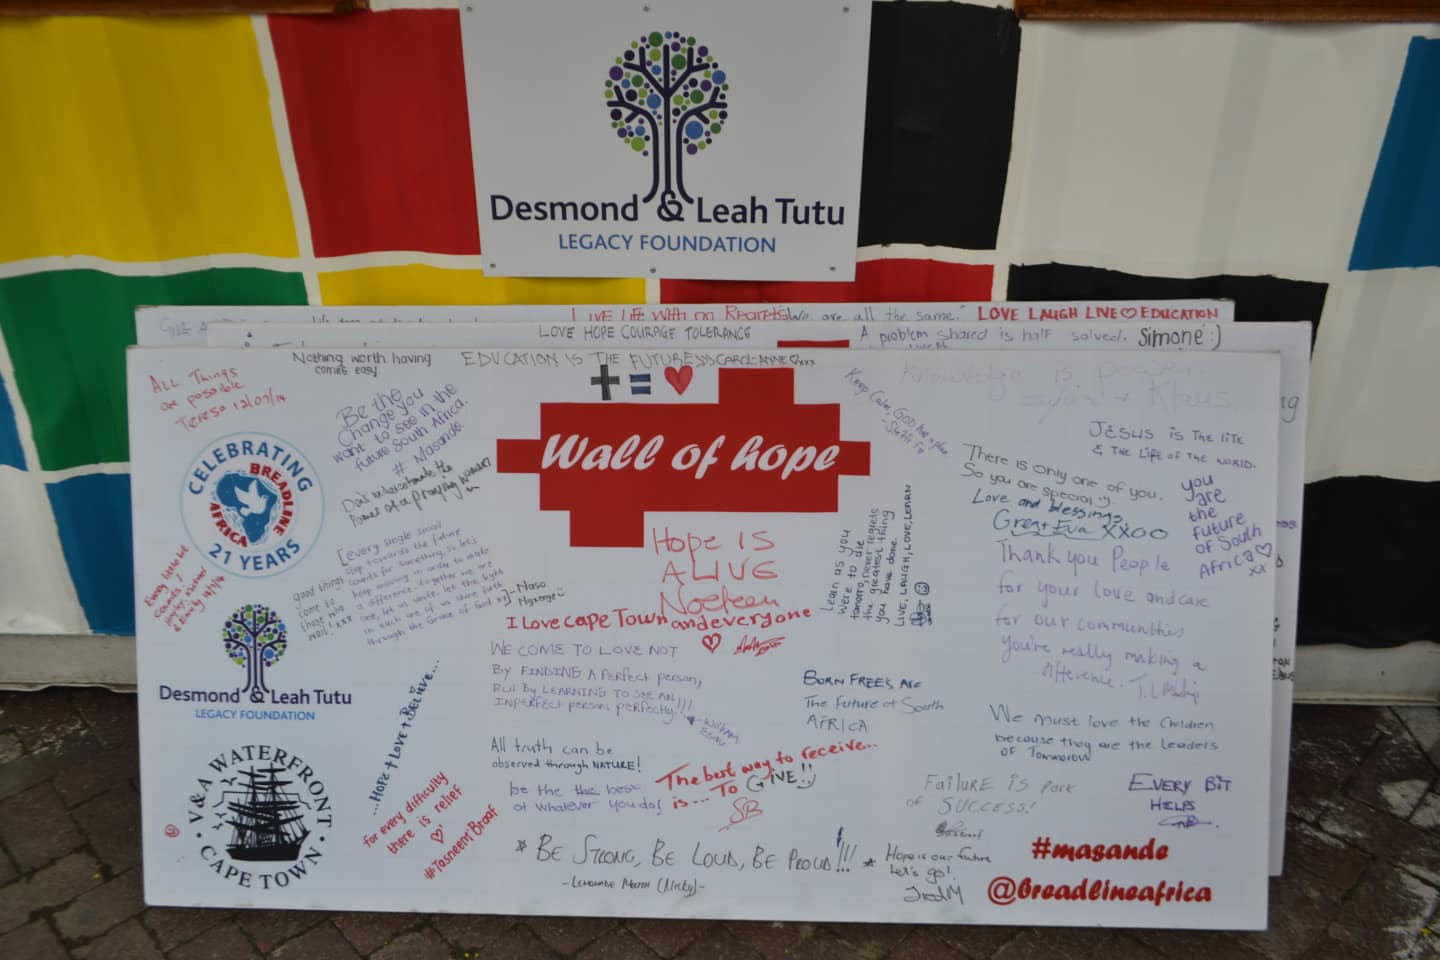 Desmond & Leah Tutu
LEGACY FOUNDATION
LIVE LIFE WITH no Regrets
We are all the same.
LOVE LAUGH LIVE ♡ EDUCATION
LOVE HOPE COURAGE TOLERANCE
A problem shared is half solved.
Simone :)
Nothing worth having
comes easy
EDUCATION IS THE FUTURE
CAROL-ANNE ♡xxx
ALL Things
are possible
Teresa 12/07/14
Be the
Change you
want to see in the
future South Africa.
# Masande.
Don't underestimate the
Power of a praying woman
CELEBRATING
BREADLINE
AFRICA
21 YEARS
+ = ♥
Wall of hope
Keep Calm, GOD has a plan
- Steffi
Knowledge is power
Klaus.
JESUS IS THE LITE
& THE LIFE OF THE WORLD.
There is only one of you.
So you are special :)
Love and blessings
Great Eva XXOO
you
are
the
future
of South
Africa ♡
xx
Every little bit
counts!
good things
come to
those who
wait! xxx
[every single small
step towards the future
counts for something, so let's
keep moving in order to make
a difference. together we are
one, let us unite. let the light
in each one of us shine forth
through the Grace of God xx]
- Naso
HOPE IS
ALIVE
Noeleen
I Love cape Town and everyone
♡
Learn as you
were to die
tomorrow, never regrets
the greatest thing
you have done.
LIVE, LAUGH, LOVE, LEARN
Thank you People
for your love and care
for our communities
you're really making a
difference.
Desmond & Leah Tutu
LEGACY FOUNDATION
WE COME TO LOVE NOT
BY FINDING A PERFECT person,
BUT BY LEARNING TO SEE AN
INPERFECT person PERFECTLY!!!
William
...HOPE + LOVE + BELIEVE...
BORN FREES ARE
The Future of South
AFRICA
We must love the Children
because they are the Leaders
of Tommorow
All truth can be
observed through NATURE!
be the the best
of whatever you do!
The best way to receive...
is... TO GIVE!!
SB
FAILURE IS PART
OF SUCCESS!
EVERY BIT
HELPS
V&A WATERFRONT
CAPE TOWN
for every difficulty
there is relief
♡
#Tasneem Braaf
* BE STRONG, BE LOUD, BE PROUD!!! *
- LEMONADE MOUTH (Nicky) -
Hope is our future
Let's go!
#masande
@breadlineafrica